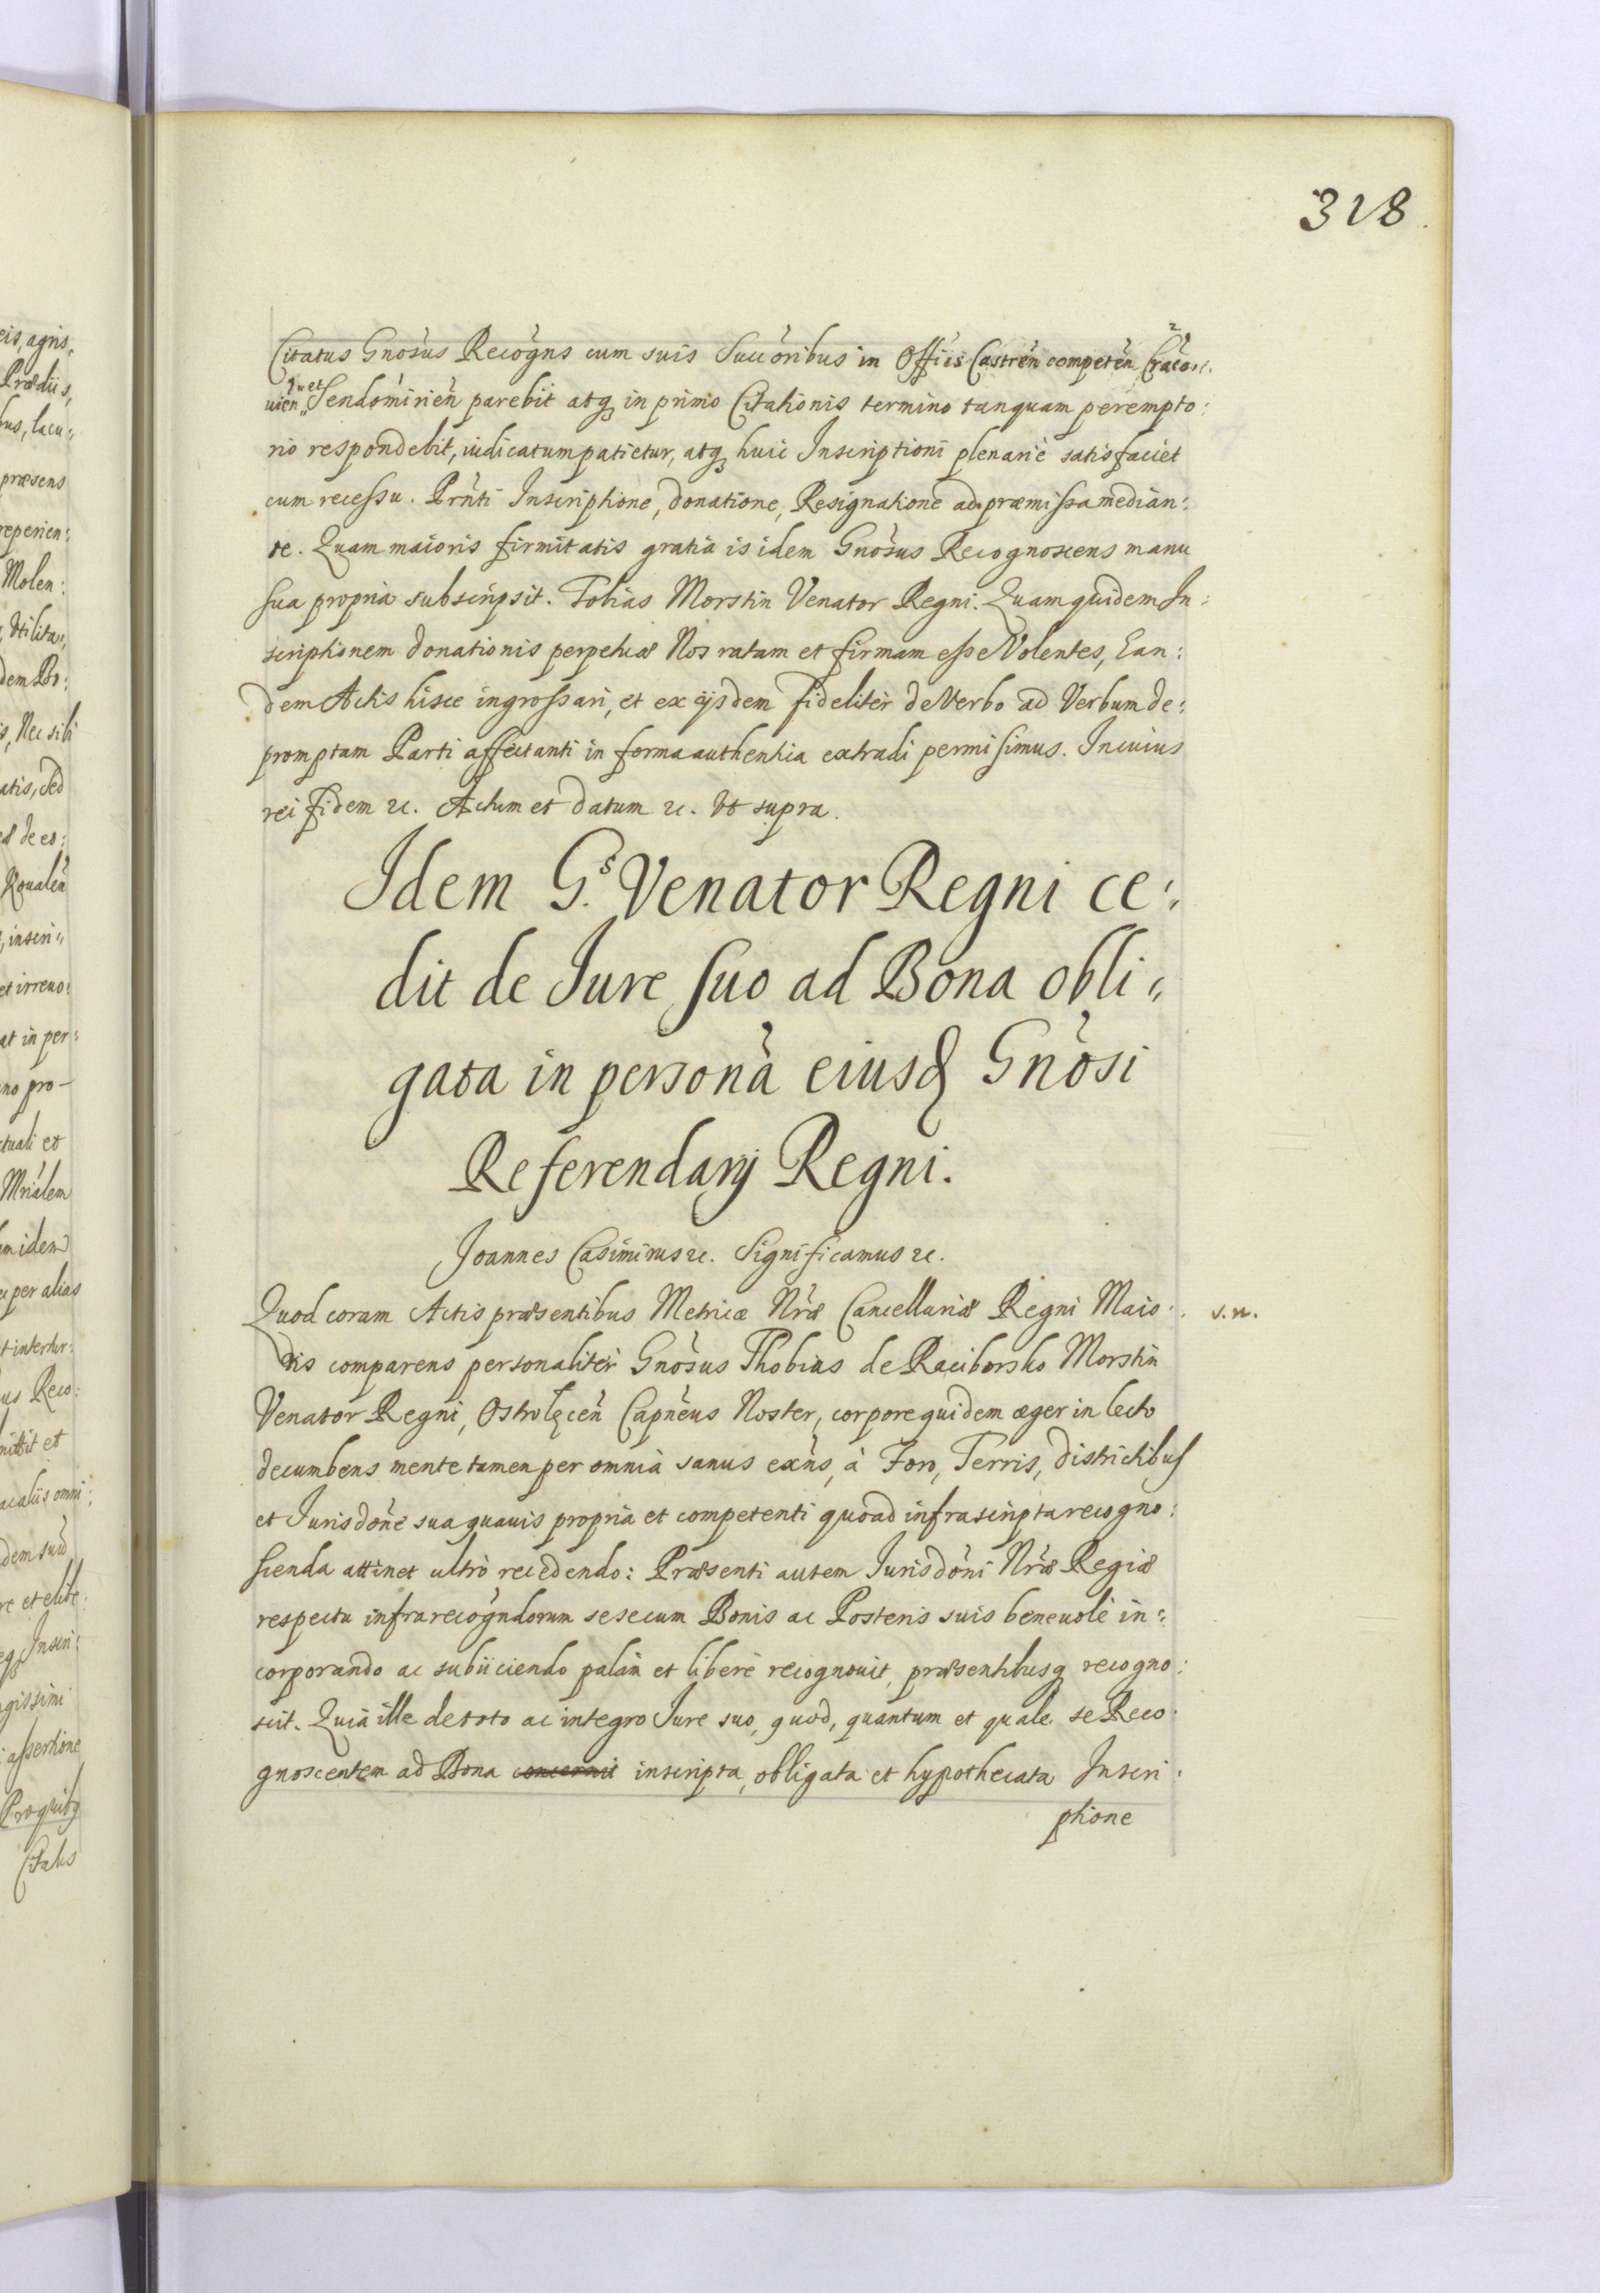 318.
Citatus Gnosus Recogns cum suis Succoribus in Offiis Castren competen Cracoᵥ:
uien, et Sendomirien parebit atq in primo Citationis termino tanquam perempto:
rio respondebit, iudicatum patietur, atq huic Inscriptioni plenarie satisfaciet
cum recessu. Prnti Inscriptione, donatione, Resignatione ad præmissa median:
te. Quam maioris firmitatis gratia is idem Gnosus Recognoscens manu
sua propria subscripsit. Tobias Morstin Venator Regni. Quam quidem In:
scriptionem donationis perpetuæ Nos ratam et firmam esse Volentes, Ean:
dem Actis hisce ingrossari, et ex ijsdem fideliter de Verbo ad Verbum de:
promptam Parti affectanti in forma authentica extradi permisimus. In cuius
rei fidem &c. Actum et Datum &c. Vt supra.
Idem G.s Venator Regni ce:
dit de Iure suo ad Bona obli:
gata in persona eiusd Gnosi
Referendarij Regni.
Joannes Casimirus &c. Significamus &c.
Quod coram Actis præsentibus Metricæ Nræ Cancellariæ Regni Maio:
s.n.
ris comparens personaliter Gnosus Thobias de Raciborsko Morstin
Venator Regni, Ostrolęcen Capneus Noster, corpore quidem æger in lecto
decumbens mente tamen per omnia sanus exns, à Foro, Terris, districtibus
et Jurisdone sua quauis propria et competenti quoad infrascripta recogno:
scenda attinet ultro recedendo: Præsenti autem Jurisdoni Nræ Regiæ
respectu infrarecogndorum se se cum Bonis ac Posteris suis beneuole in:
corporando ac subiiciendo palam et libere recognouit, præsentibusq recogno:
scit. Quia ille de toto ac integro Jure suo, quod, quantum et quale se Reco:
gnoscentem ad Bona concernit inscripta, obligata et hypothecata Inscri:
ptione
eis, agris,
Prædiis,
bus, lacu:
præsens
reperien:
Molen:
Vtilita:
dem Bo:
is, Nec sibi
atis, sed
de eo:
Koualen
inscri:
et irreuo:
at in per:
no pro-
ctuali et
Mrialem
m idem
per alias
t intertur:
us Reco:
mittit et
ac aliis omni:
dem suu
re et elibe:
Inscri
gissimi
assertione
Pro quibq
Citatus